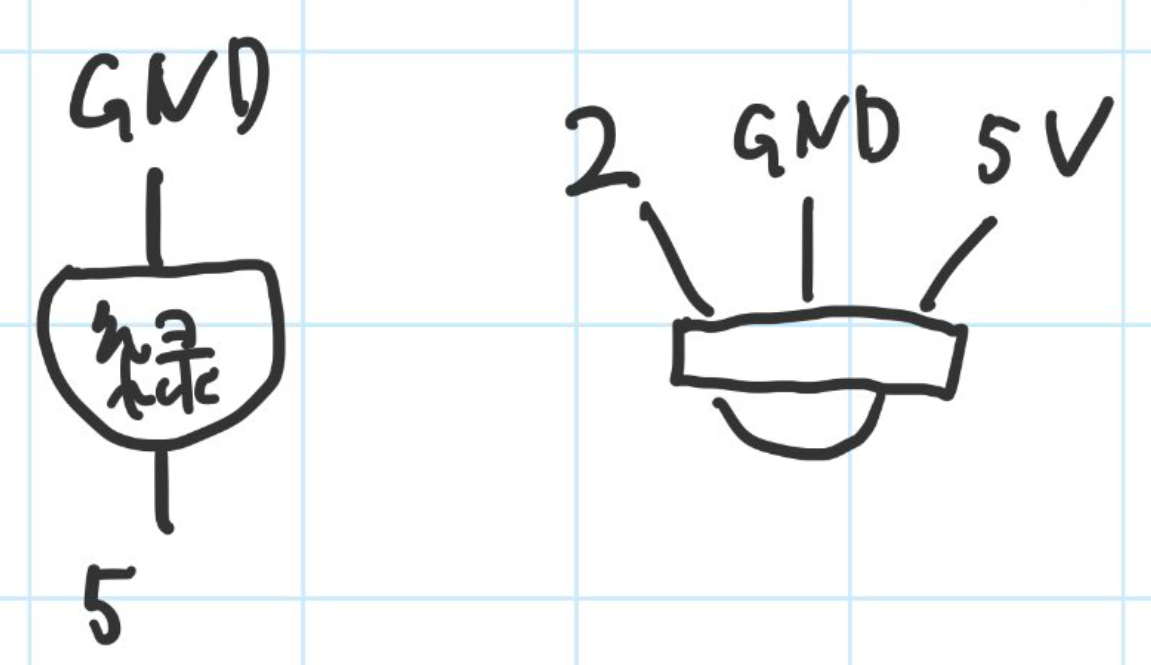 GND
緑
5
2 GND 5V